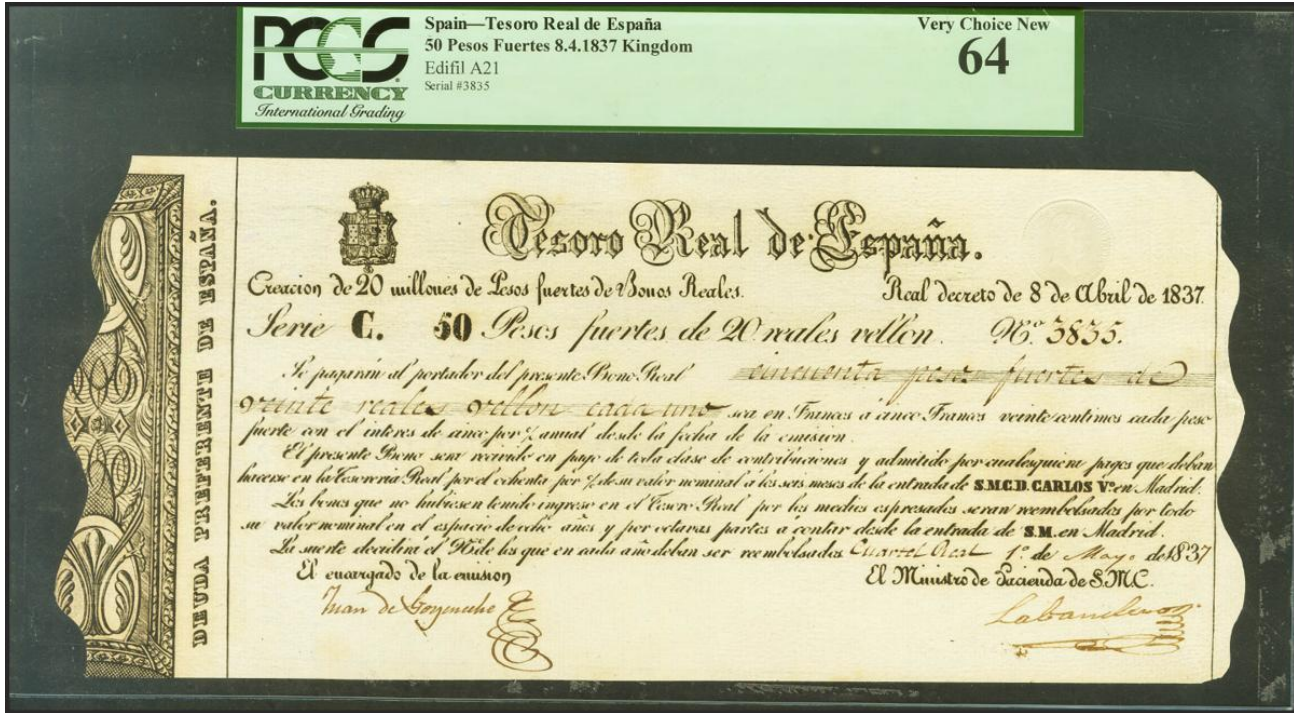 PCGS
CURRENCY
International Grading
Spain—Tesoro Real de España
50 Pesos Fuertes 8.4.1837 Kingdom
Edifil A21
Serial #3835
Very Choice New
64
DEUDA PREFERENTE DE ESPAÑA.
Tesoro Real de España.
Creacion de 20 millones de Pesos fuertes de Bonos Reales.
Real decreto de 8 de Abril de 1837.
Serie C. 50 Pesos fuertes de 20 reales vellon. Nº 3835.
Se pagarán al portador del presente Bono Real cincuenta pesos fuertes de
veinte reales vellon cada uno sea en Francos á cinco Francos veinte centimos cada peso
fuerte con el interes de cinco por % anual desde la fecha de la emision.
El presente Bono sera recivido en pago de toda clase de contribuciones y admitido por cualesquiera pagos que deban
hacerse en la Tesoreria Real por el ochenta por % de su valor nominal á los seis meses de la entrada de S.M.C.D. CARLOS Vº en Madrid.
Los bonos que no hubiesen tenido ingreso en el Tesoro Real por los medios espresados seran reembolsados por todo
su valor nominal en el espacio de ocho años y por octavas partes a contar desde la entrada de S.M. en Madrid.
La suerte decidirá el Nº de los que en cada año deban ser reembolsados Cuartel Real 1º de Mayo de 1837
El encargado de la emision
El Ministro de Hacienda de S.M.C.
Juan de Goyeneche
Labandero